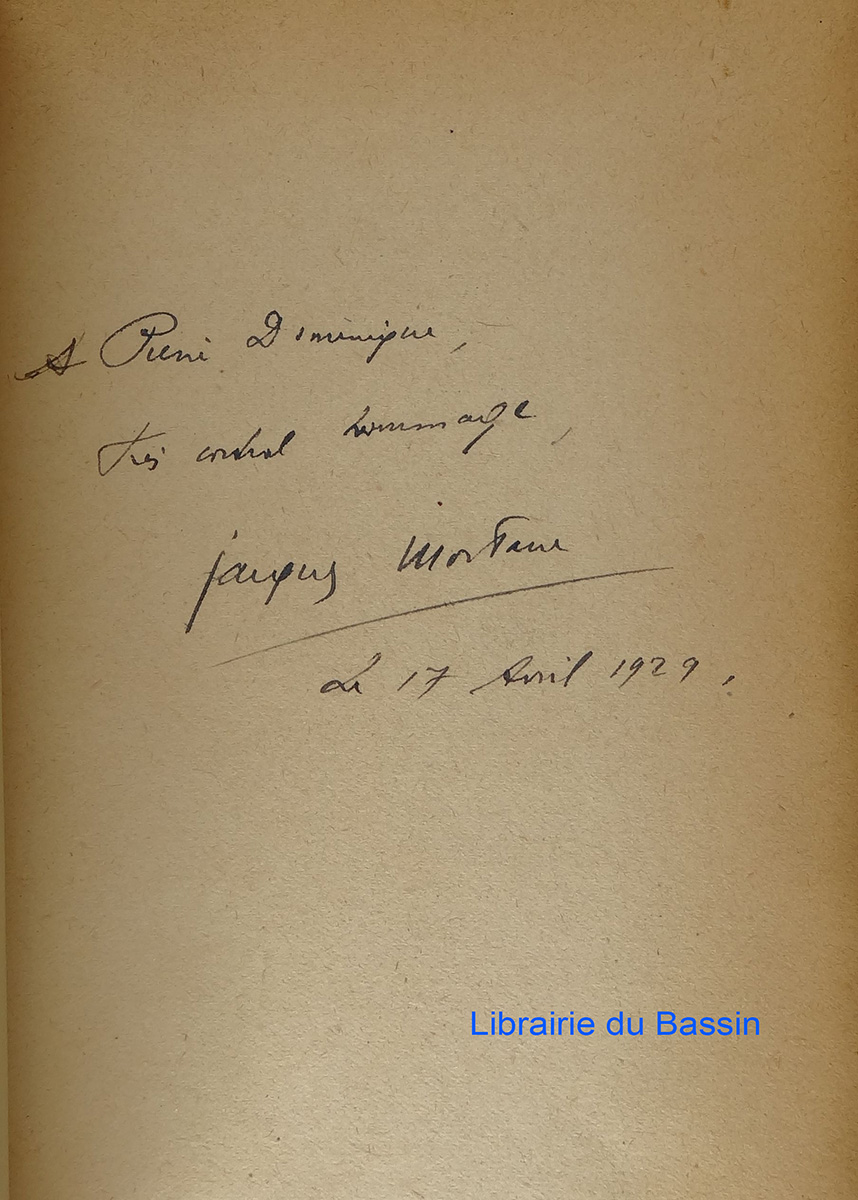 A Pierre Dominique,
Très cordial hommage,
Jacques Mortane
Le 17 Avril 1929.
Librairie du Bassin